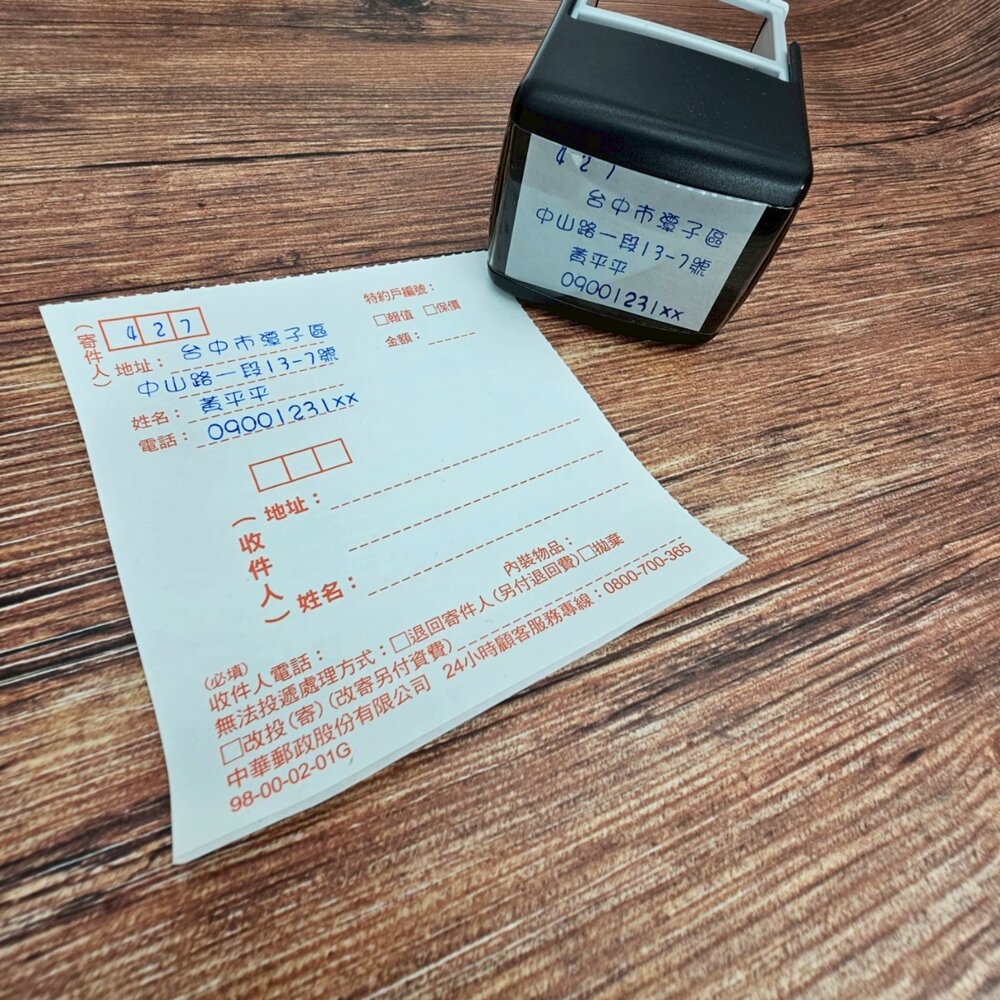 427
台中市潭子區
中山路一段13-7號
黃平平
09001231xx
(寄件人)
427
特約戶編號：
□報值 □保價
金額：
地址：台中市潭子區
中山路一段13-7號
姓名：黃平平
電話：09001231xx
(收件人)
地址：
姓名：
內裝物品：
(必填)
收件人電話：
無法投遞處理方式：□退回寄件人(另付退回費)□拋棄
□改投(寄)(改寄另付資費)
中華郵政股份有限公司 24小時顧客服務專線：0800-700-365
98-00-02-01G